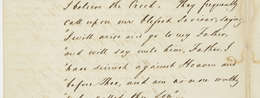 I believe the Creek. They frequently
call upon our Blessed Saviour, saying
"I will arise and go to my Father,
"and will say unto him, Father, I
"have sinned against Heaven and
"before Thee, and am no more worthy
"to be called thy Son"